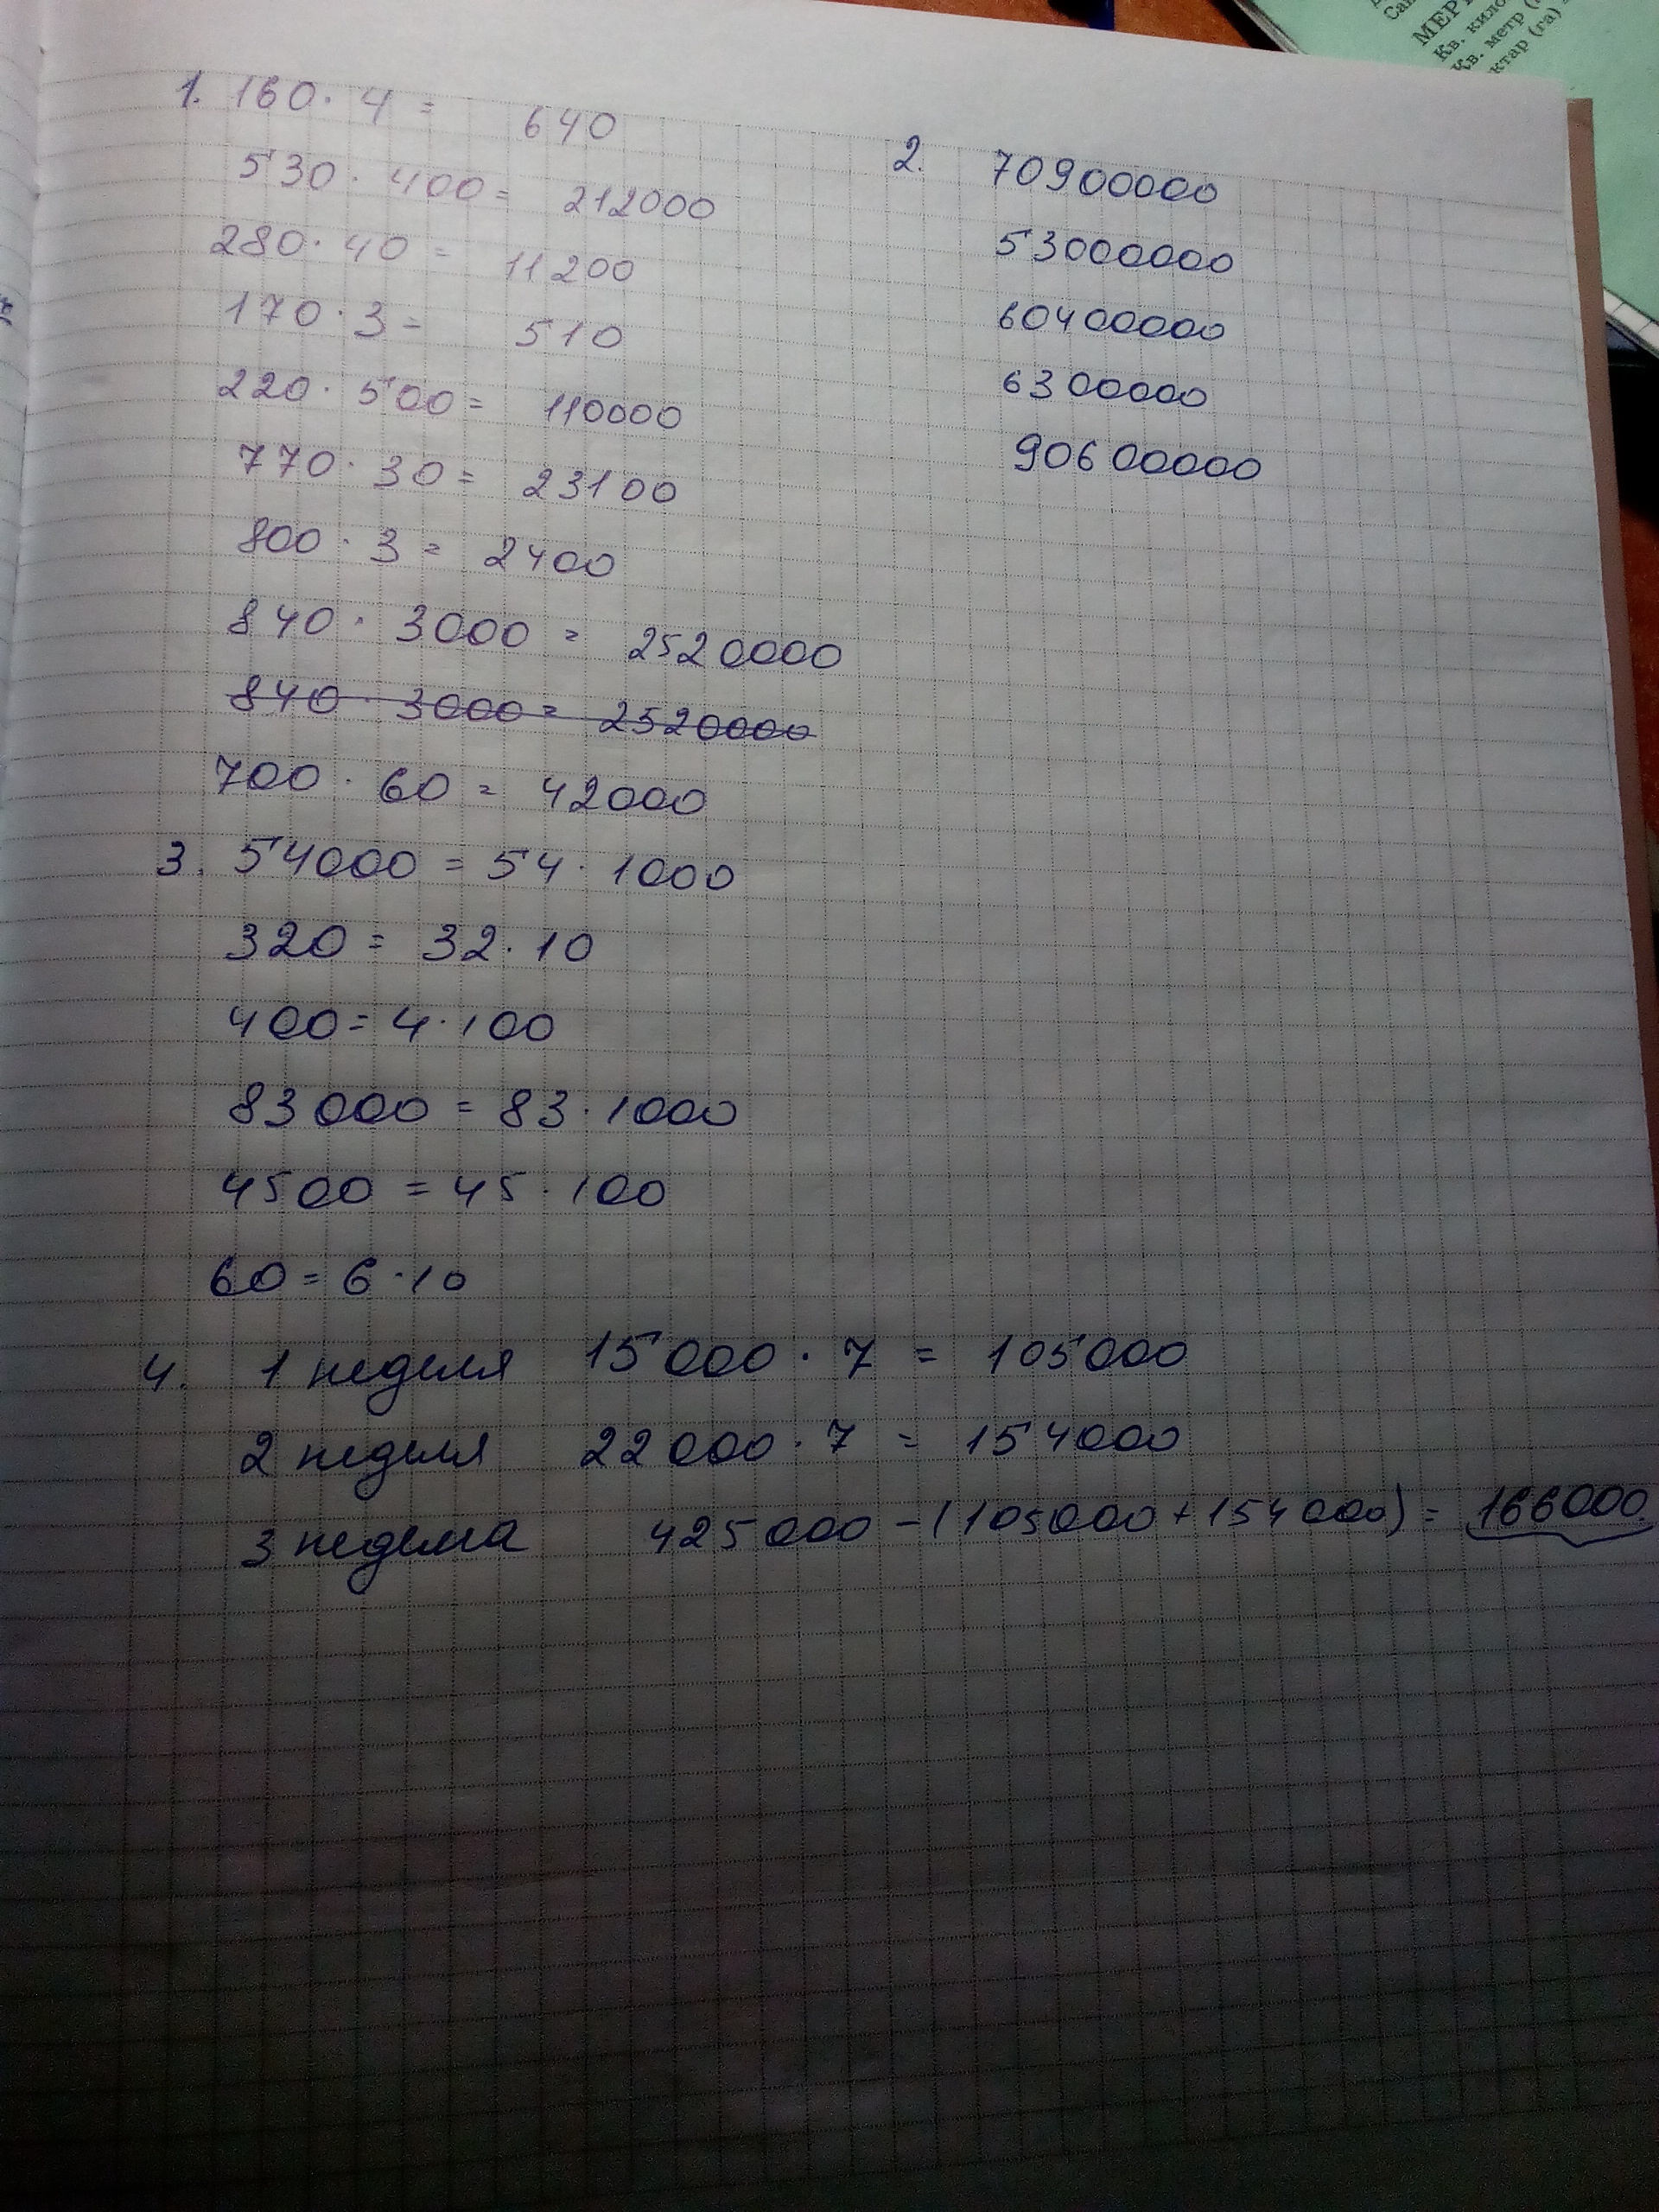 1. 160 · 4 = 640
530 · 400 = 212000
280 · 40 = 11200
170 · 3 = 510
220 · 500 = 110000
770 · 30 = 23100
800 · 3 = 2400
840 · 3000 = 2520000
840 · 3000 = 2520000
700 · 60 = 42000
2. 70900000
53000000
60400000
6300000
90600000
3. 54000 = 54 · 1000
320 = 32 · 10
400 = 4 · 100
83000 = 83 · 1000
4500 = 45 · 100
60 = 6 · 10
4. 1 неделя 15000 · 7 = 105000
2 неделя 22000 · 7 = 154000
3 неделя 425000 - (105000 + 154000) = 166000.
Кв. метр
ктар (га) =